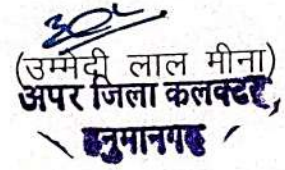 (उम्मेदी लाल मीना)
अपर जिला कलक्टर,
हनुमानगढ़